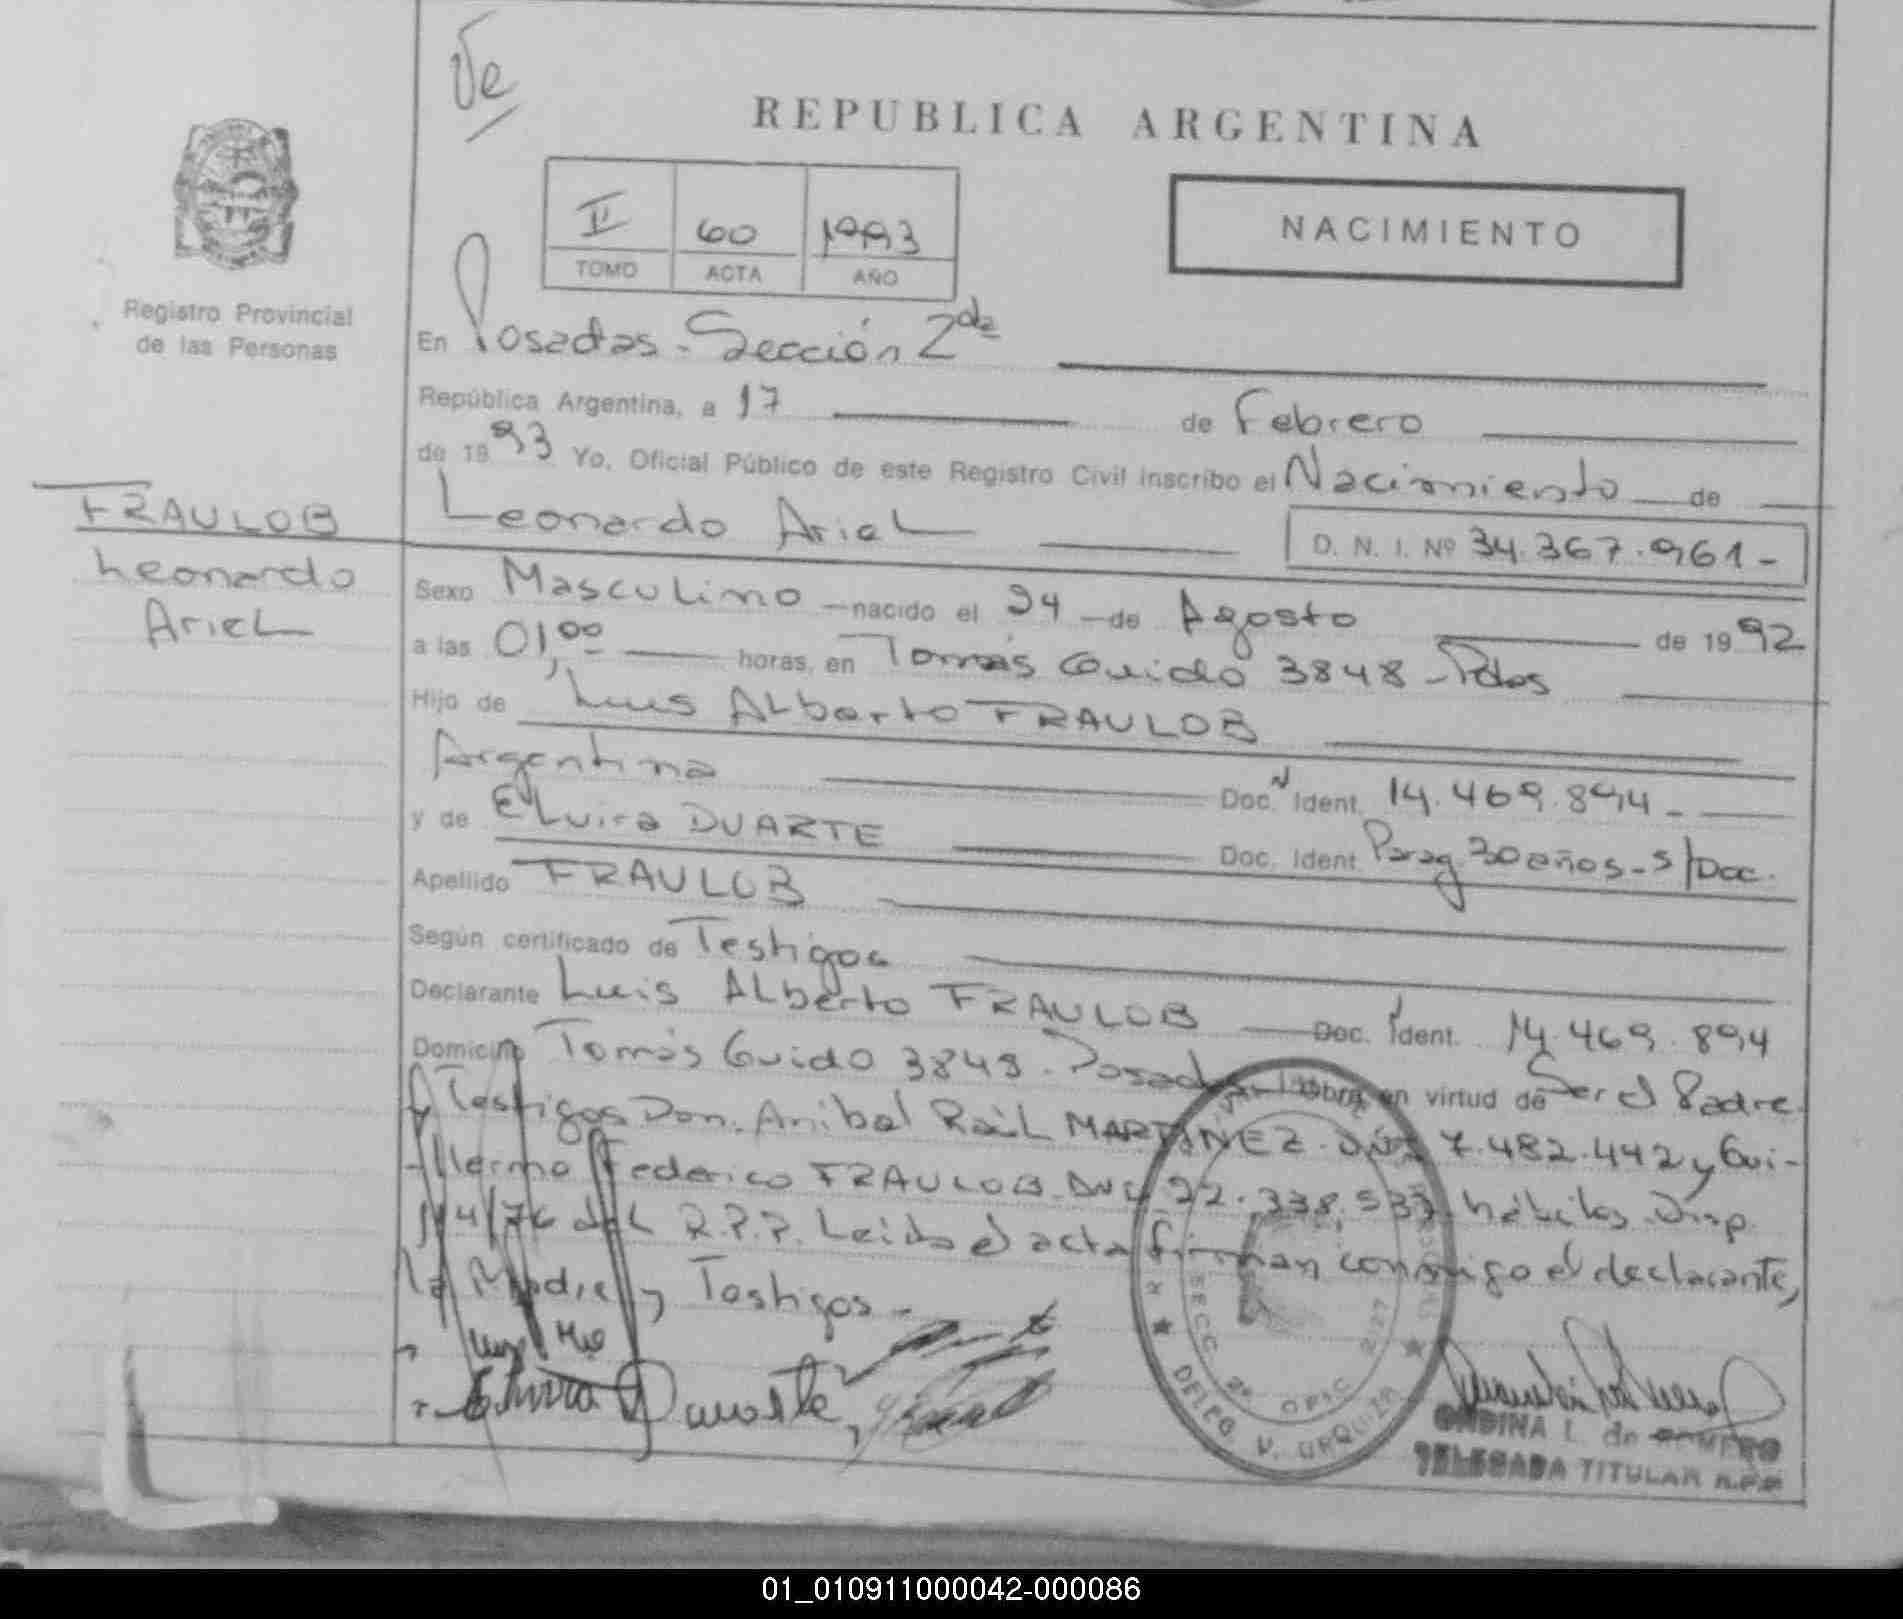 Ve
REPUBLICA ARGENTINA
II 60 1993
TOMO ACTA AÑO
NACIMIENTO
Registro Provincial
de las Personas
En Posadas - Sección 2da
República Argentina, a 17 de Febrero
de 1993 Yo, Oficial Público de este Registro Civil inscribo el Nacimiento de
FRAULOB
Leonardo
Ariel
Leonardo Ariel D. N. I. Nº 34.367.961-
Sexo Masculino nacido el 24 de Agosto de 1992
a las 01,00 horas, en Tomás Guido 3848 - Pdas
Hijo de Luis Alberto FRAULOB
Argentina Doc. Ident. 14.469.894-
y de Elvira DUARTE Doc. Ident. Parag. 30 años - s/Doc.
Apellido FRAULOB
Según certificado de Testigos
Declarante Luis Alberto FRAULOB Doc. Ident. 14.469.894
Domicilio Tomás Guido 3848 - Posadas obra en virtud de Ser el Padre.
y Testigos Don. Anibal Raúl MARTINEZ. DNI 7.482.442 y Gui-
llermo Federico FRAULOB. DNI 22.338.533 hábiles. Disp.
14/76 del R.P.P. Leida el acta firman conmigo el declarante,
la Madre y Testigos -
Elvira Duarte
SECC 2ª OPIC 2127
DELEG. V. URQUIZA
ONDINA L. de ROMERO
DELEGADA TITULAR R.P.P.
01_010911000042-000086